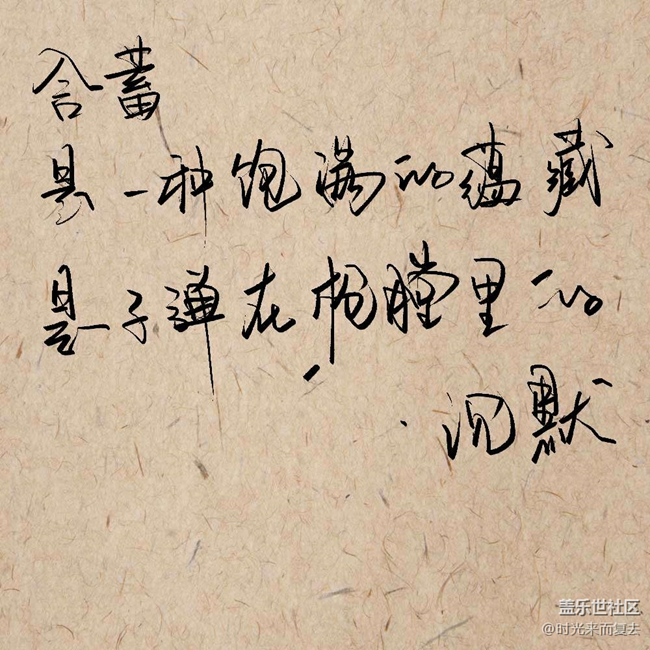 含蓄
是一种饱满的蕴藏
是子弹在枪膛里的
沉默
盖乐世社区
@时光来而复去